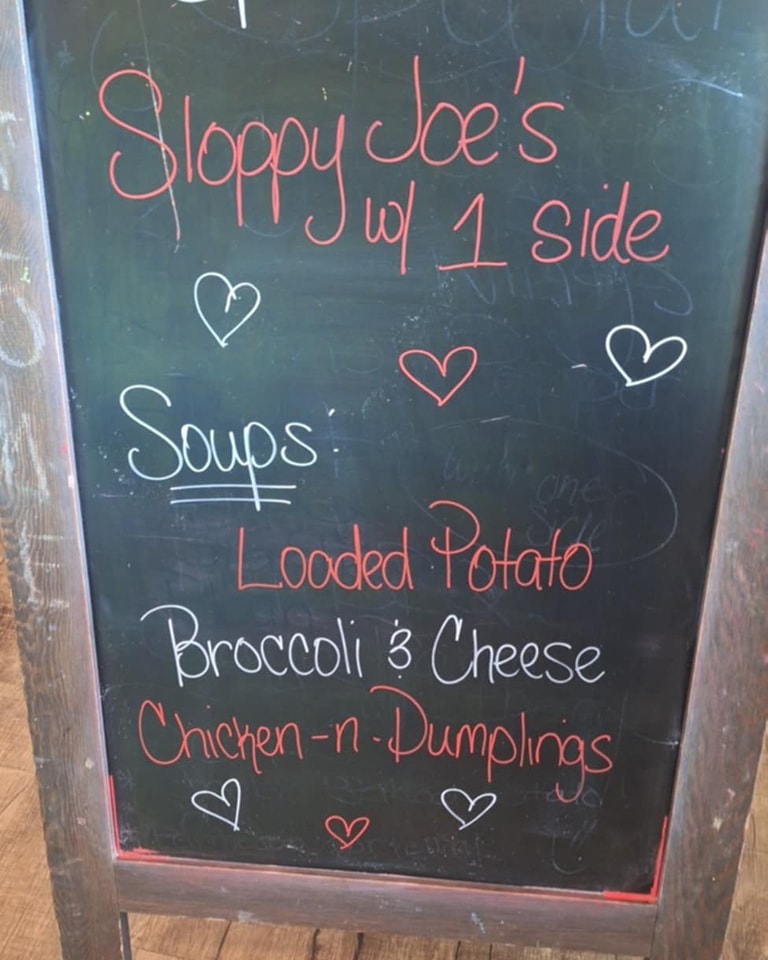 Sloppy Joe's
w/ 1 Side
Soups:
one
Side
Loaded Potato
Broccoli & Cheese
Chicken-n-Dumplings